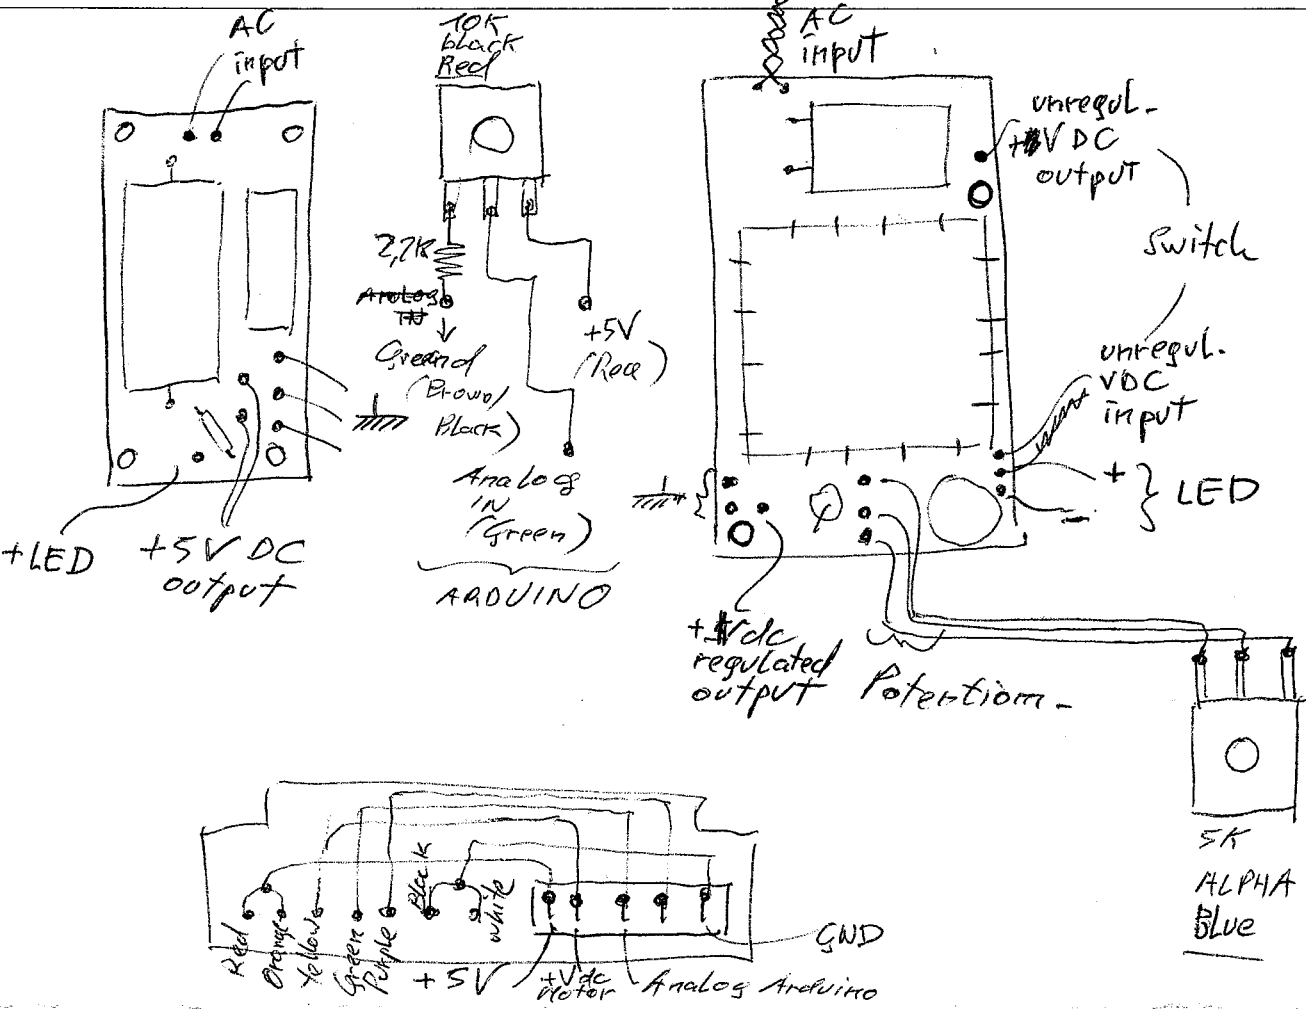 AC
input
10K
black
Red
2,7K
Analog
IN
Ground
(Brown/
Black)
+5V
(Red)
Analog
IN
(Green)
ARDUINO
+LED
+5V DC
output
AC
input
unregul.
VDC
output
Switch
unregul.
VDC
input
+
-
LED
+Vdc
regulated
output
Potentiom-
5K
ALPHA
BLUE
Red
Orange
Yellow
Green
Purple
Black
White
+5V
+Vdc
Motor
Analog Arduino
GND